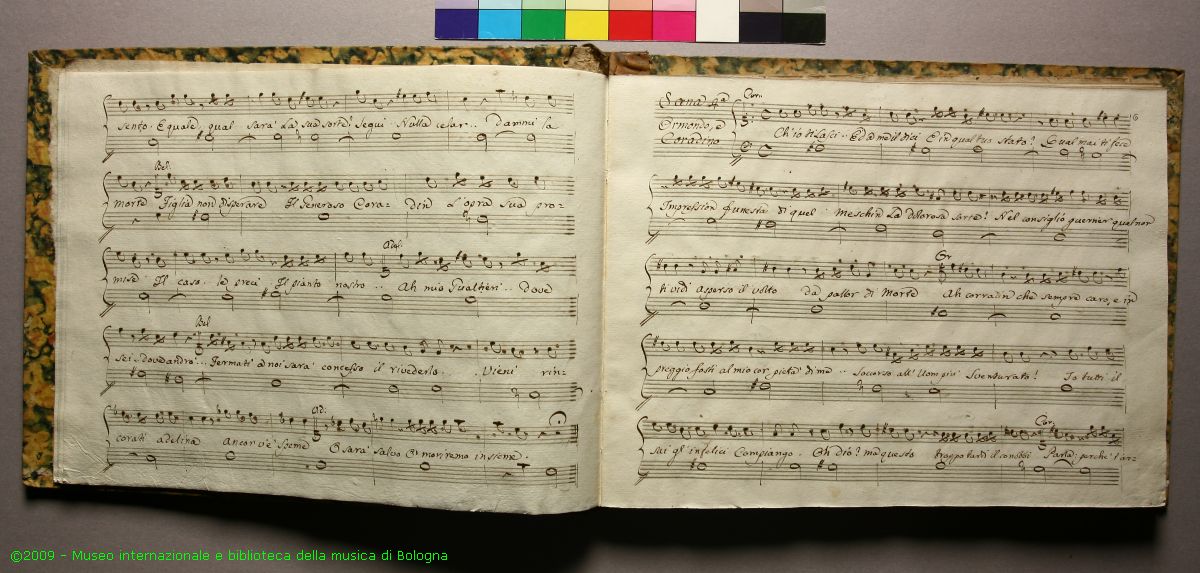 sento. E quale, qual sarà La sua sorte? Segui. Nulla celar.. Dammi la
Bel:
morte Figlia non disperare Il Generoso Cora- din L'opra sua pro-
Adel:
mise Il caso. le preci Il pianto nostro.. Ah mio Gualtieri.. Dove
Bel
sei? dov'andrò... Fermati à noi sarà concesso il rivederlo.. Vieni rin-
Ad:
corati Adelina Ancor v'è speme O sarà salvo O moriremo insieme.
16
Scena 4ª
Ormondo, e
Coradino
Cor:
Ch'io ti Lasci.. Ed à me il dici E in qual tuo stato? Qual mai ti fece
Impression funesta di quel meschin La dolorosa sorte! Nel consiglio guerrier qual non
Or
ti vidi asperso il volto da pallor di Morte Ah corradin che sempre caro, e in
preggio fosti al mio cor pietà di me.. soccorso all'Uom più sventurato! Io tutti il
Cor:
sai gl'infelici Compiango. Oh dio! ma questo troppo tardi il conobbi Parla; perchè l'ar-
©2009 - Museo internazionale e biblioteca della musica di Bologna